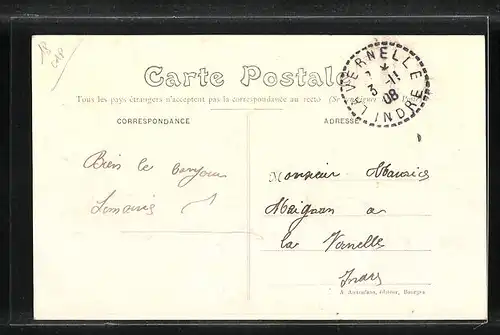 18
CAP
VERNELLE
3-11
08
INDRE
Carte Postale
Tous les pays étrangers n'acceptent pas la correspondance au recto (Se
CORRESPONDANCE
ADRESSE
Bien le bonjour
Monsieur Maurice
Meignan a
la Vernelle
Indre
éditeur, Bourges